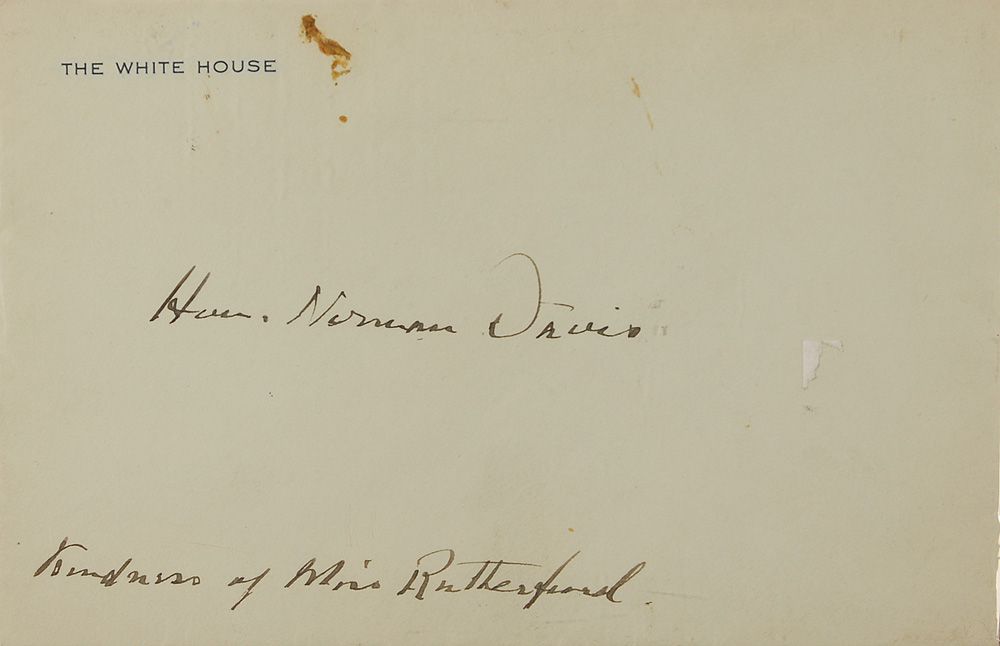 THE WHITE HOUSE
Hon. Norman Davis
Kindness of Miss Rutherfurd.